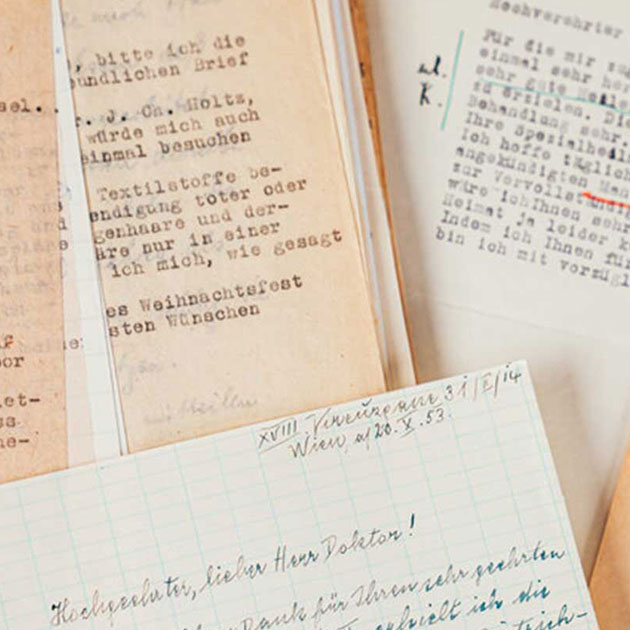 sel..
, bitte ich die
undlichen Brief
. J. Ch. Holtz,
würde mich auch
einmal besuchen
Textilstoffe be-
endigung toter oder
genhaare und der-
äre nur in einer
ich mich, wie gesagt
es Weihnachtsfest
sten Wünschen
or
et-
ss
ne-
Hochverehrter
Für die mir zug
einmal sehr her
sehr gute Heile
zu erzielen. Die
Behandlung sehr.
Ihre Spezialheil
Ich hoffe täglich
angekündigten Man
zur Vervollständig
wäre ichIhnen sehr
Heimat ja leider k
Indem ich Ihnen für
bin ich mit vorzügl
K.
XVIII. 31/II/14
Wien, 20. X. 53.
Hochgeehrter, lieber Herr Doktor!
Dank für Ihren sehr geehrten
erhielt ich die